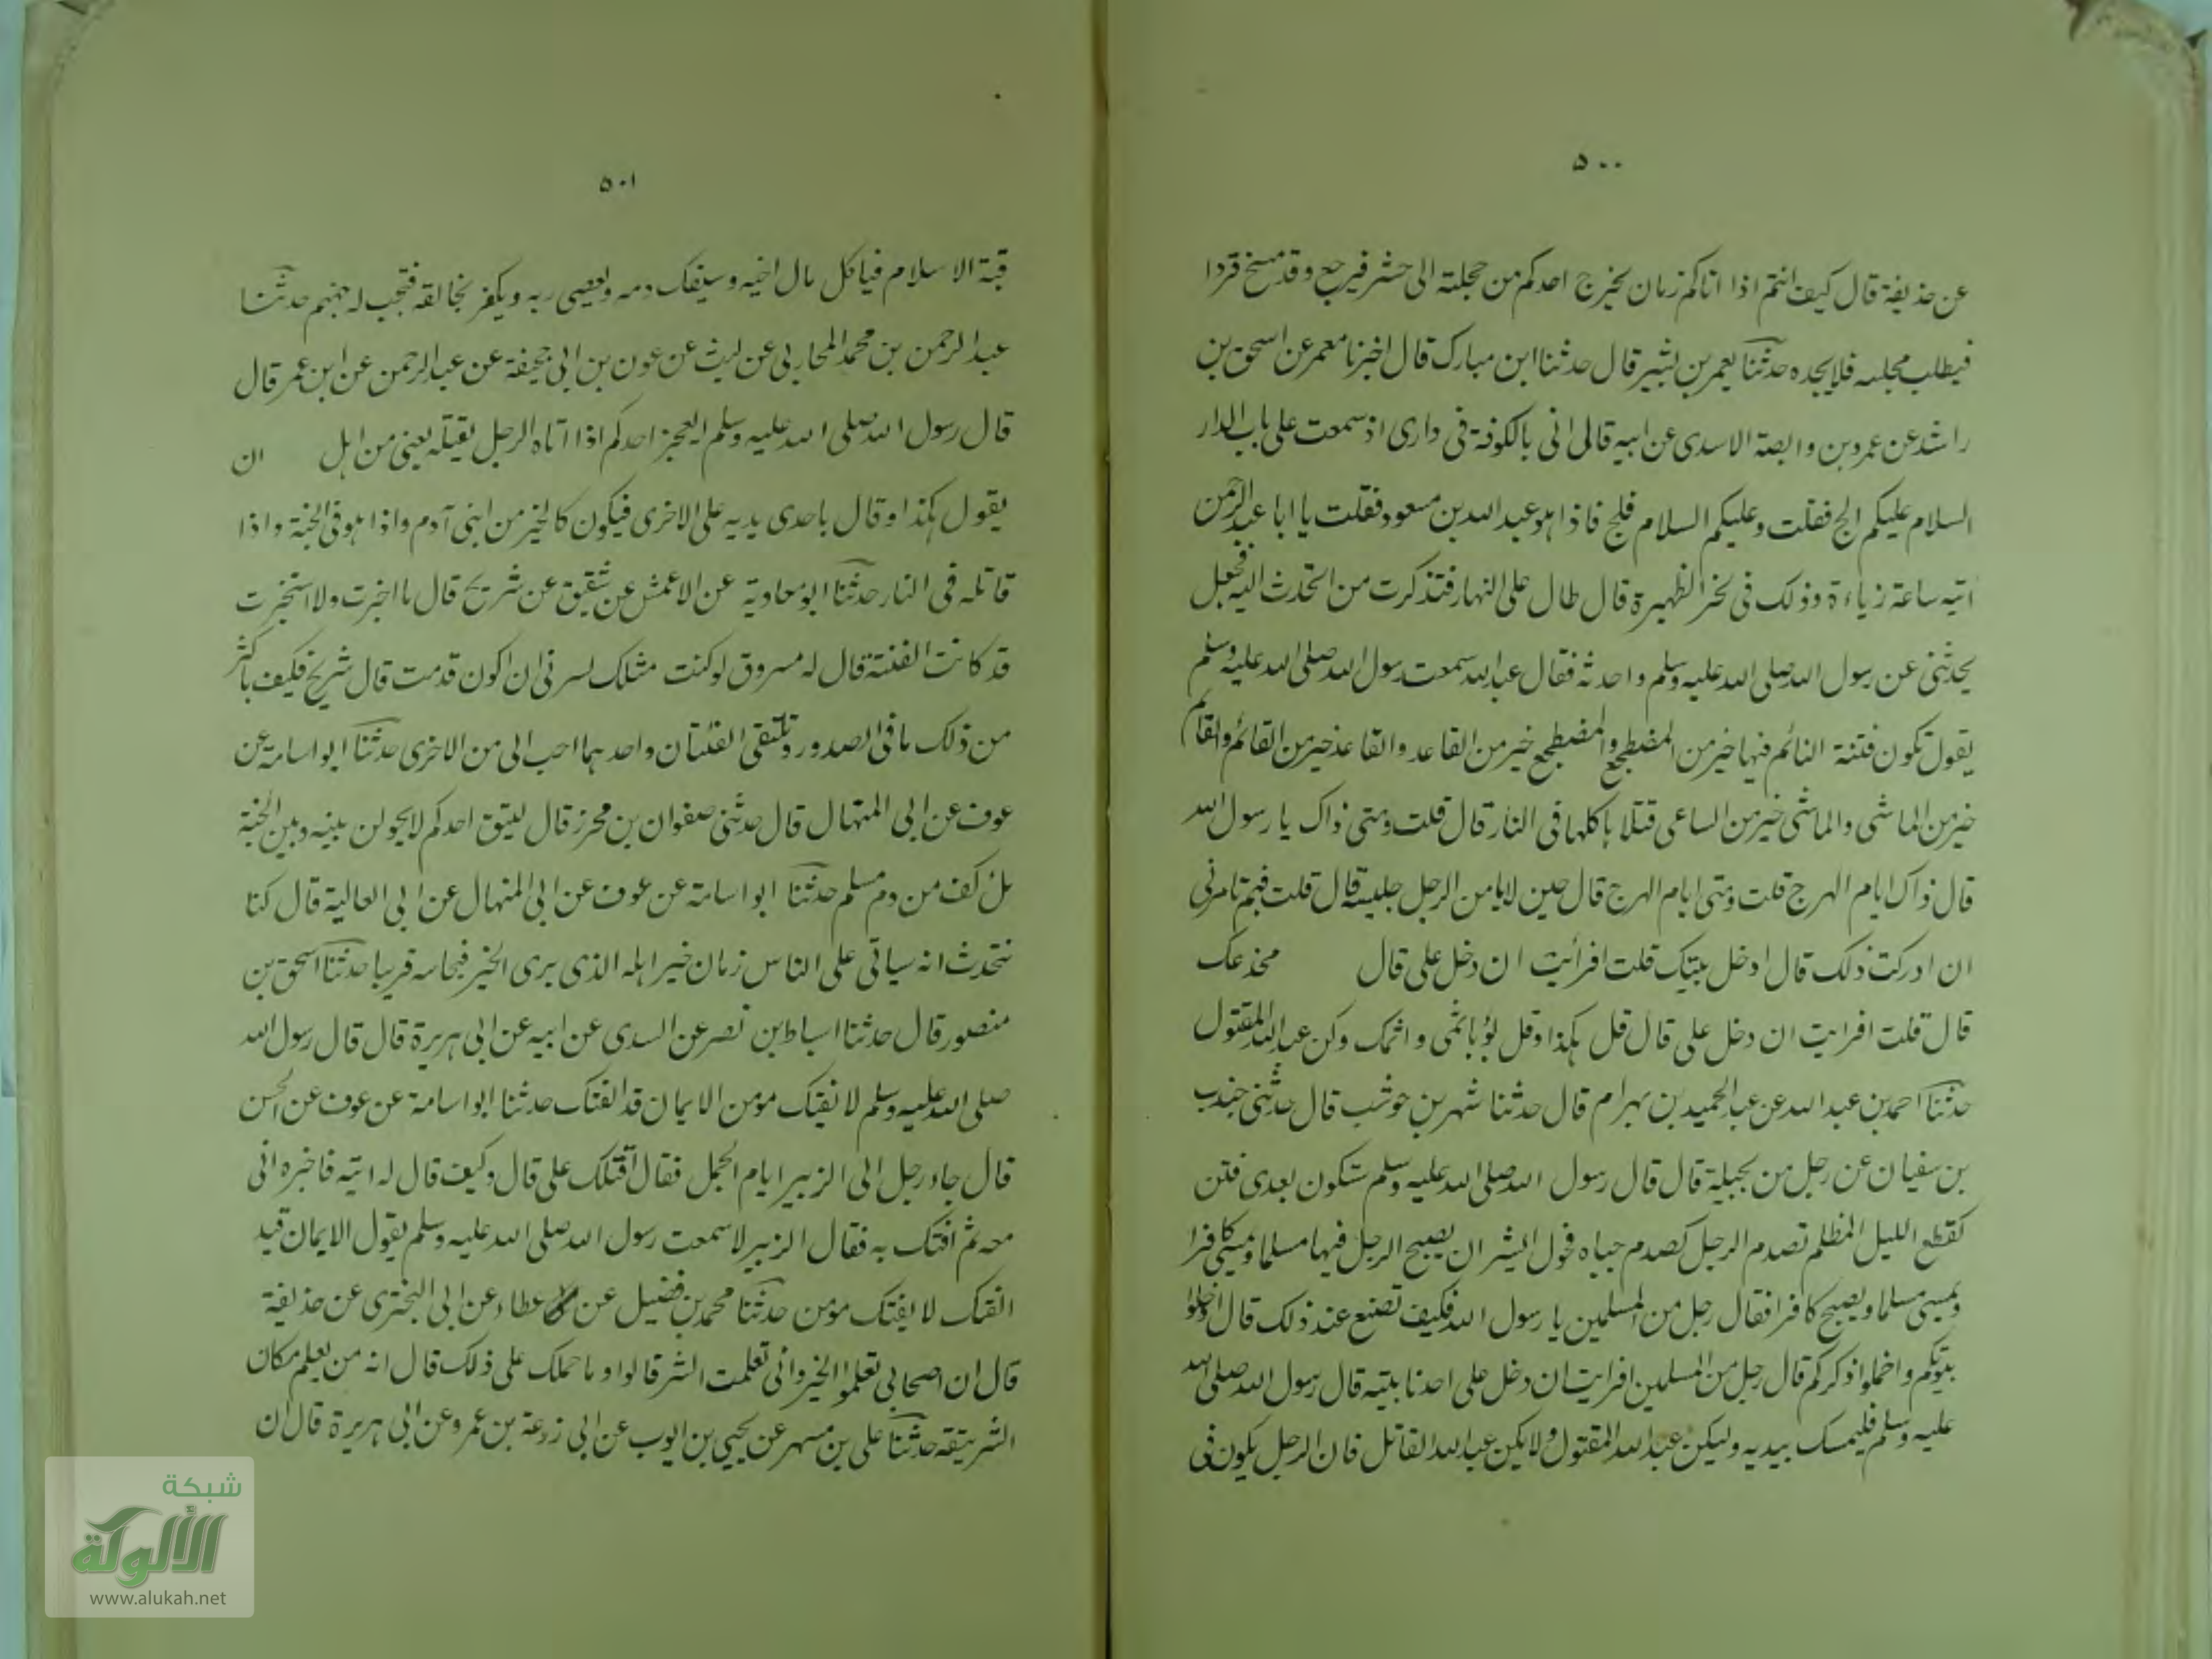 ٥٠٠
عن حذيفة قال كيف انتم اذا اتاكم زمان يخرج احدكم من حجلته الى حشر فيرجع وقد مسخ قردا
فيطلب مجلسه فلا يجده حدثنا يعمر بن بشير قال حدثنا ابن مبارك قال اخبرنا معمر عن اسحق بن
راشد عن عمرو بن وابصة الاسدى عن ابيه قال انى بالكوفة فى دارى اذ سمعت على باب الدار
السلام عليكم الج فقلت وعليكم السلام فلج فاذا هو عبد الله بن مسعود فقلت يا ابا عبد الرحمن
اتيه ساعة زياءة وذلك فى نحر الظهيرة قال طال على النهار فتذكرت من اتحدث اليه فجعل
يحدثنى عن رسول الله صلى الله عليه وسلم واحدثه فقال عبد الله سمعت رسول الله صلى الله عليه وسلم
يقول تكون فتنة النائم فيها خير من المضطجع والمضطجع خير من القاعد والقاعد خير من القائم والقائم
خير من الماشى والماشى خير من الساعى قتلا باكلها فى النار قال قلت ومتى ذاك يا رسول الله
قال ذاك ايام الهرج قلت ومتى ايام الهرج قال حين لا يامن الرجل جليسه قال قلت فبم تامرنى
ان ادركت ذلك قال ادخل بيتك قلت افرأيت ان دخل على قال مخذعك
قال قلت افرايت ان دخل على قال قل هكذا وقل بؤ باثمى واثمك وكن عبد الله المقتول
حدثنا احمد بن عبد الله عن عبد الحميد بن بهرام قال حدثنا شهر بن حوشب قال حدثنى جندب
بن سفيان عن رجل من بجيلة قال قال رسول الله صلى الله عليه وسلم ستكون بعدى فتن
كقطع الليل المظلم تصدم الرجل كصدم جباه فحول الثيران يصبح الرجل فيها مسلما ويمسى كافرا
ويمسى مسلما ويصبح كافرا فقال رجل من المسلمين يا رسول الله فكيف تصنع عند ذلك قال ادخلوا
بيوتكم واخملوا ذكركم قال رجل من المسلمين افرايت ان دخل على احدنا بيته قال رسول الله صلى الله
عليه وسلم فليمسك بيديه وليكن عبد الله المقتول ولا يكن عبد الله القاتل فان الرجل يكون فى
٥٠١
قبة الاسلام فياكل مال اخيه ويسفك دمه ويعصى ربه ويكفر بخالقه فتجب له جهنم حدثنا
عبد الرحمن بن محمد المحاربى عن ليث عن عون بن ابى جحيفة عن عبد الرحمن عن ابن عمر قال
قال رسول الله صلى الله عليه وسلم ايعجز احدكم اذا اتاه الرجل يقتله يعنى من اهل ان
يقول هكذا وقال باحدى يديه على الاخرى فيكون كالخير من ابنى آدم واذا هو فى الجنة واذا
قاتله فى النار حدثنا ابو معاوية عن الاعمش عن شقيق عن شريح قال ما اخبرت ولا استخبرت
قد كانت الفتنة قال له مسروق لو كنت مثلك لسرنى ان اكون قدمت قال شريح فكيف باكثر
من ذلك ما فى الصدور وتلتقى الفئتان واحدهما احب الى من الاخرى حدثنا ابو اسامة عن
عوف عن ابى المنهال قال حدثنى صفوان بن محرز قال ليتق احدكم لا يحولن بينه وبين الجنة
ملء كف من دم مسلم حدثنا ابو اسامة عن عوف عن ابى المنهال عن ابى العالية قال كنا
نتحدث انه سياتى على الناس زمان خير اهله الذى يرى الخير فيجانبه قريبا حدثنا اسحق بن
منصور قال حدثنا اسباط بن نصر عن السدى عن ابيه عن ابى هريرة قال قال رسول الله
صلى الله عليه وسلم لا يفتك مؤمن الايمان قد الفتك حدثنا ابو اسامة عن عوف عن الحسن
قال جاء رجل الى الزبير ايام الجمل فقال اقتلك على قال وكيف قال له اتيه فاخبره انى
معه ثم افتك به فقال الزبير لا سمعت رسول الله صلى الله عليه وسلم يقول الايمان قيد
الفتك لا يفتك مؤمن حدثنا محمد بن فضيل عن عطاء عن ابى البخترى عن حذيفة
قال ان اصحابى تعلموا الخير وانى تعلمت الشر قالوا وما حملك على ذلك قال انه من يعلم مكان
الشر يتقه حدثنا على بن مسهر عن يحيى بن ايوب عن ابى زرعة بن عمرو عن ابى هريرة قال ان
شبكة
الألوكة
www.alukah.net